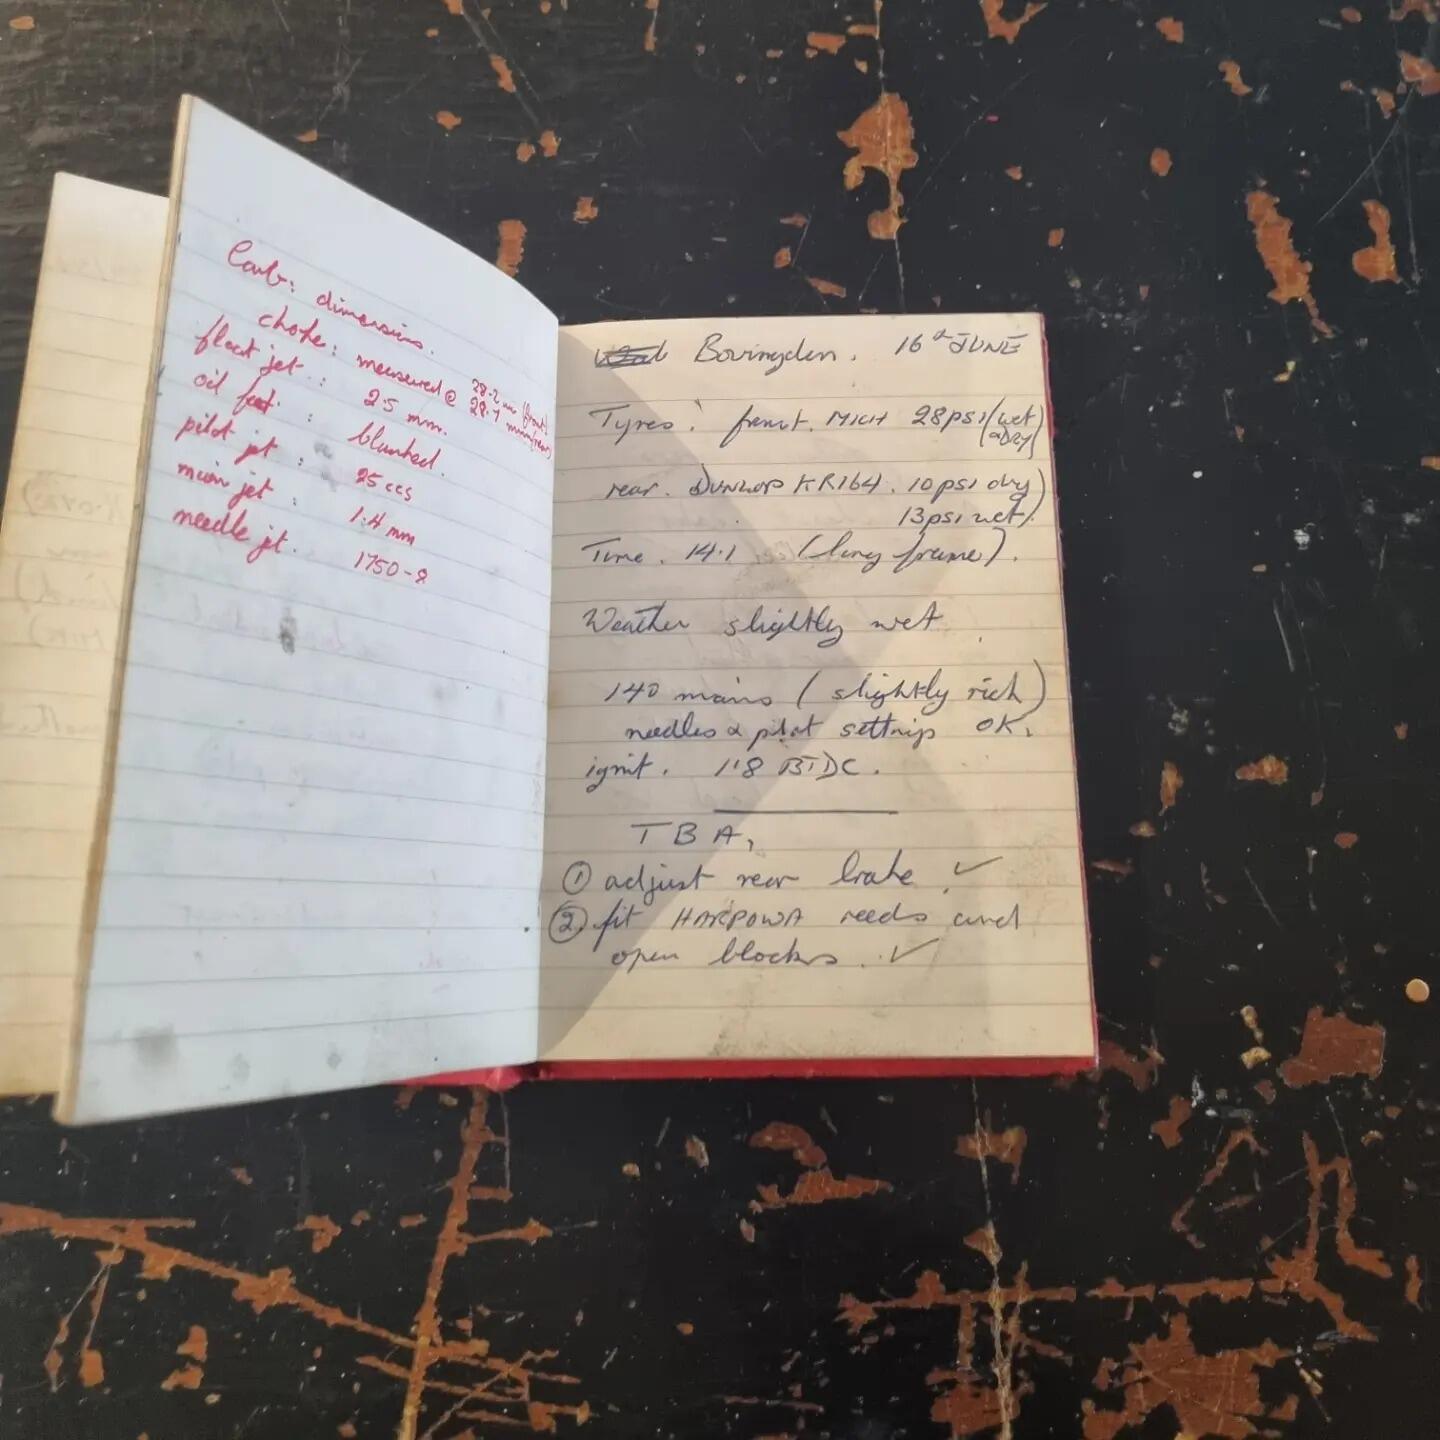 Carb: dimensions.
choke: measured @ 28.2 mm (front)
28.1 mm (rear)
float jet : 2.5 mm.
oil feed. : blanked.
pilot jet : 25 ccs
main jet : 1.4 mm
needle jet. 1750-2
Bovingdon. 16th JUNE
Tyres: front. MICH 28psi (wet
& DRY)
rear. DUNLOP KR164. 10psi dry)
13psi wet).
Time. 14.1 (long frame).
Weather slightly wet.
140 mains (slightly rich)
needles & pilot settings OK.
ignit. 1.8 BTDC.
TBA,
① adjust rear brake. ✓
② fit HARPOWA reeds and
open blocks. ✓